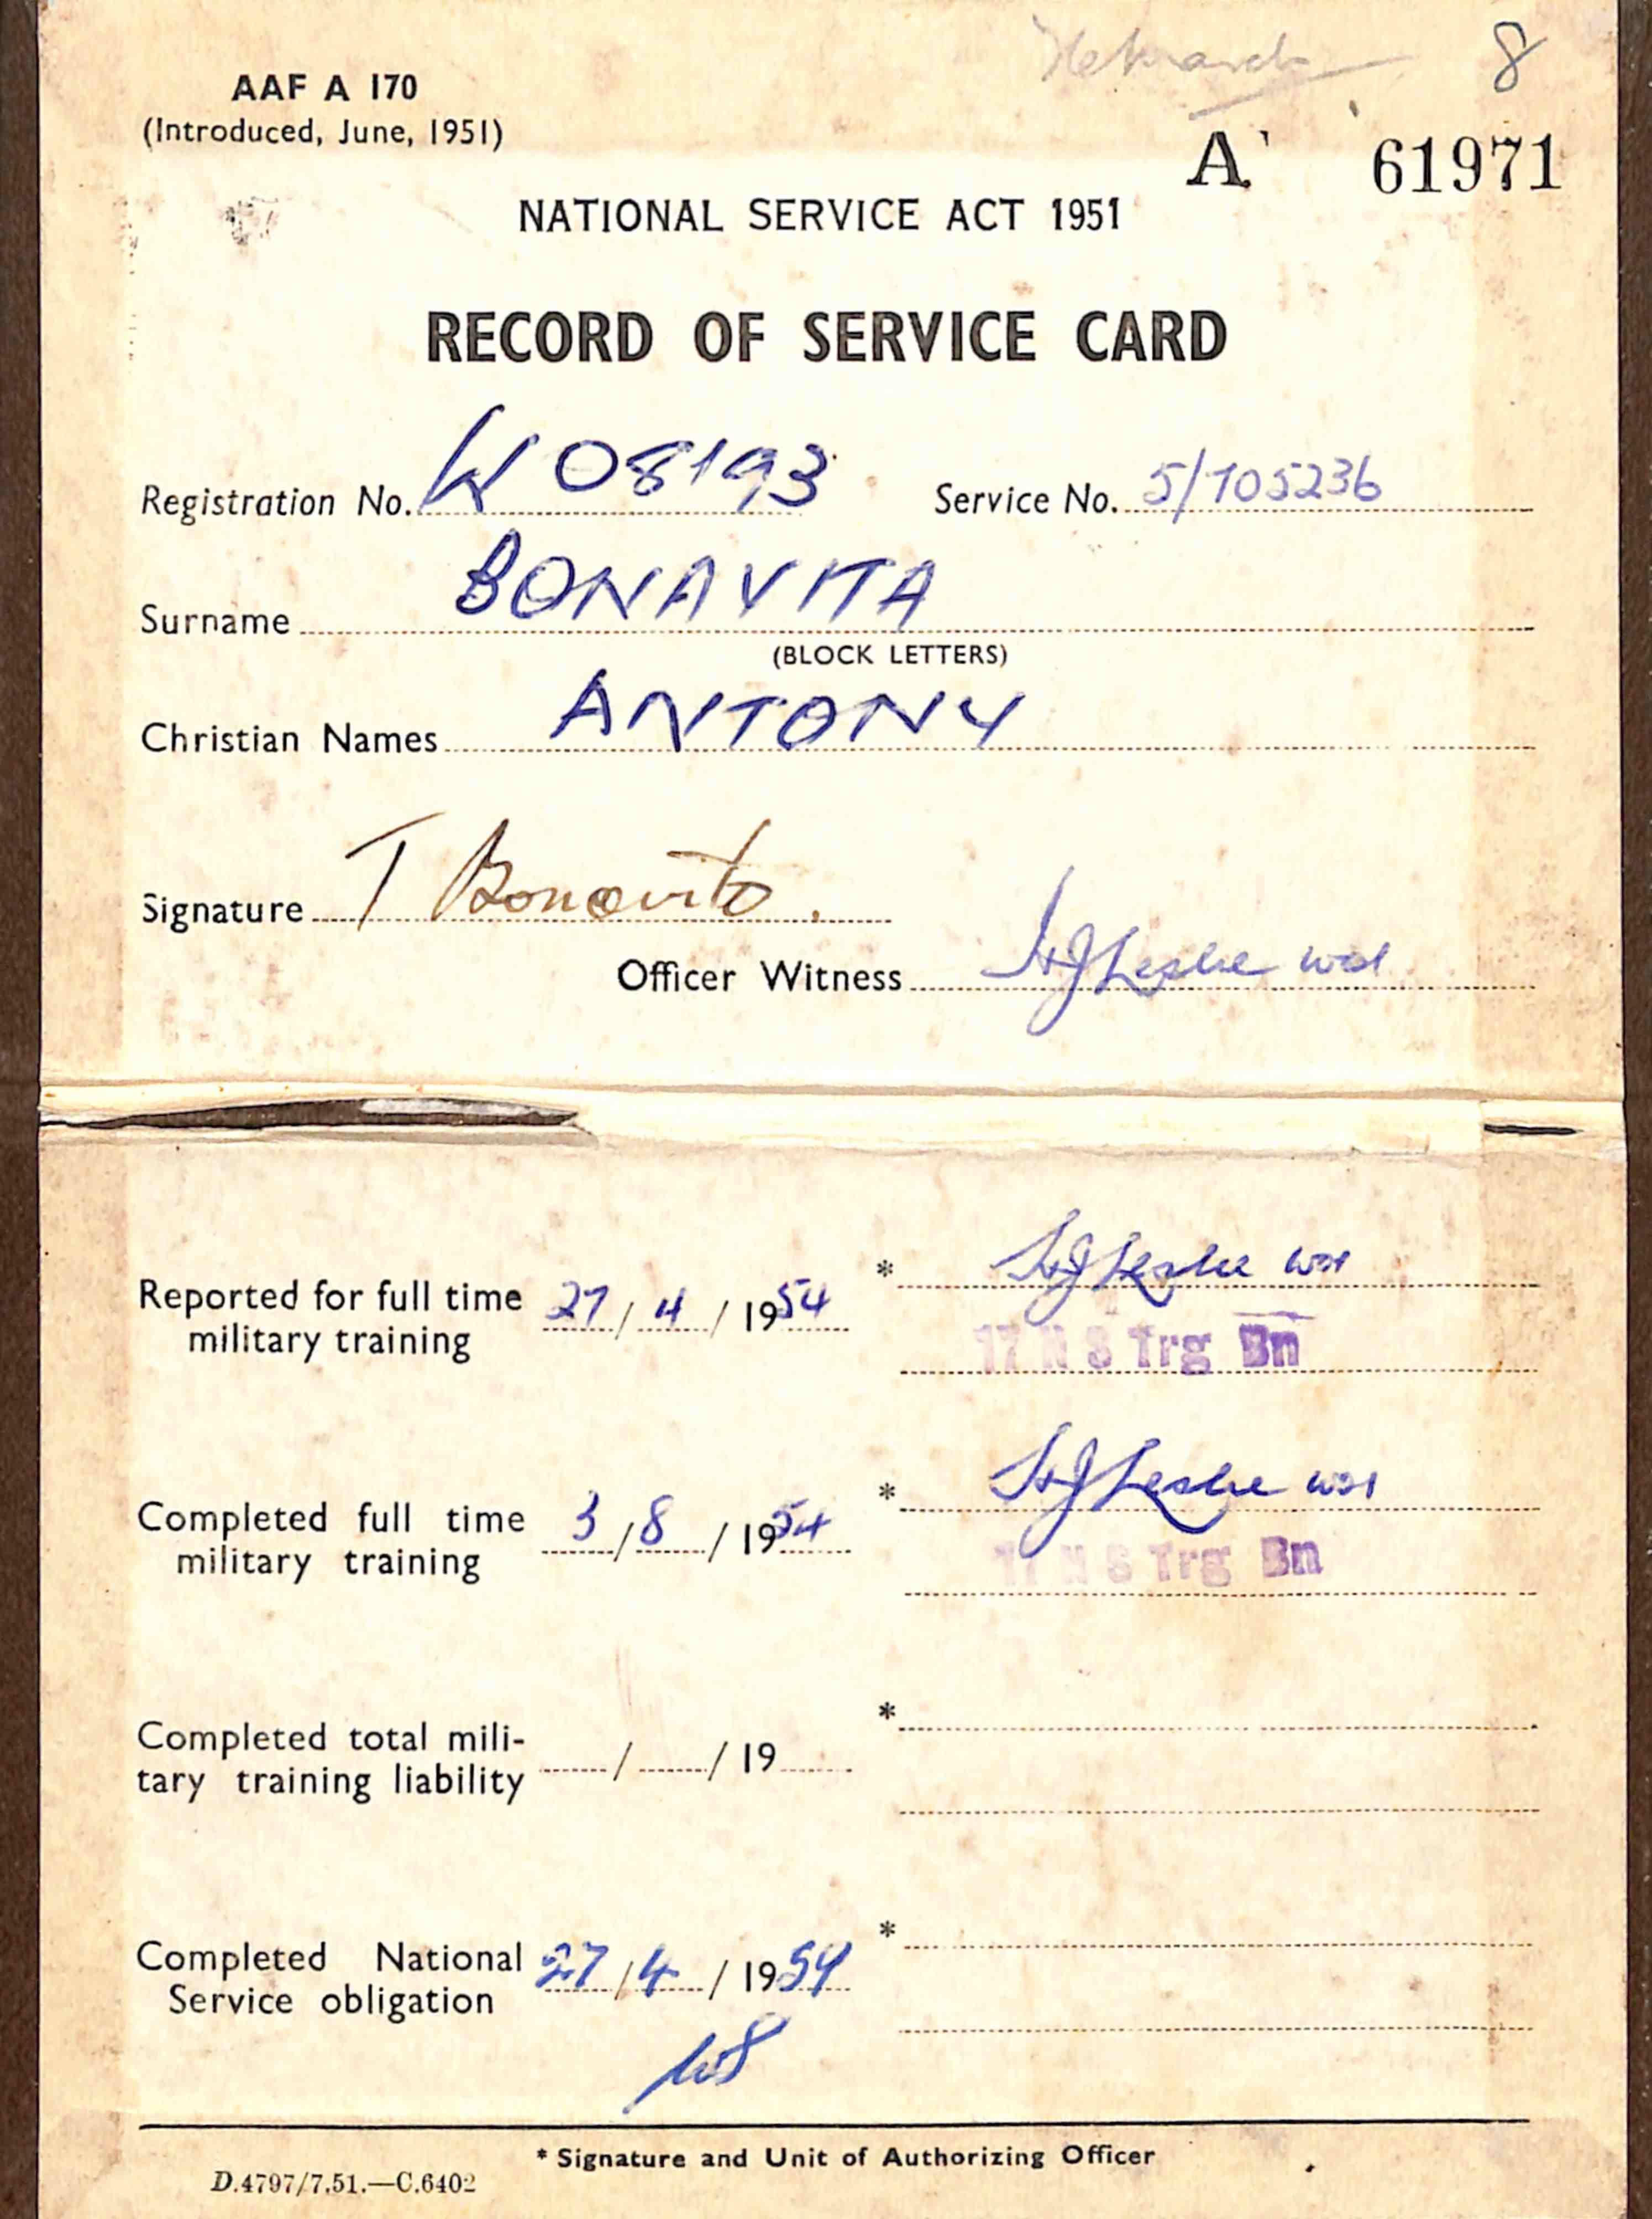 8
AAF A 170
(Introduced, June, 1951)
A 61971
NATIONAL SERVICE ACT 1951
RECORD OF SERVICE CARD
Registration No. W 08193 Service No. 5/705236
Surname BONAVITA
(BLOCK LETTERS)
Christian Names ANTONY
Signature T Bonavita.
Officer Witness Leslie
Reported for full time 27/4/1954 * Leslie
military training 17 N S Trg Bn
Completed full time 3/8/1954 * Leslie
military training 17 N S Trg Bn
Completed total mili- / /19 *
tary training liability
Completed National 27/4/1954 *
Service obligation
* Signature and Unit of Authorizing Officer
D.4797/7.51.—C.6402